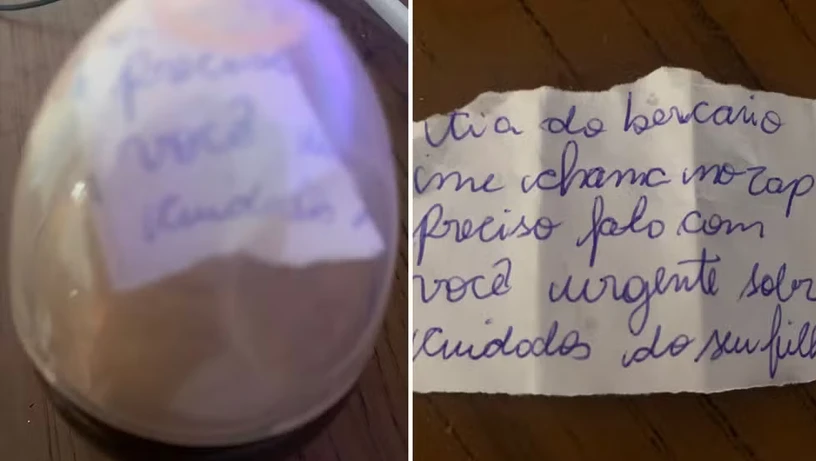 precis
você
cuidados
tia do bercario
me chama no zap
preciso falo com
você urgente sobr
cuidados do seu filh